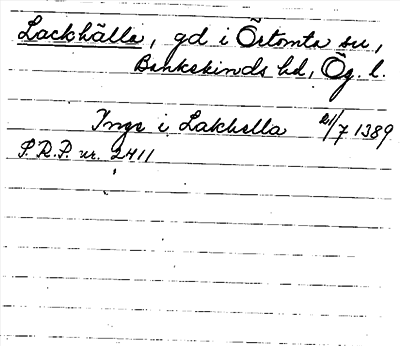 Lackhälla, gd i Östomta su,
Bankekinds hd, Ög. l.
Inge i Lakhella 21/7 1389
P.R.P. nr. 2411